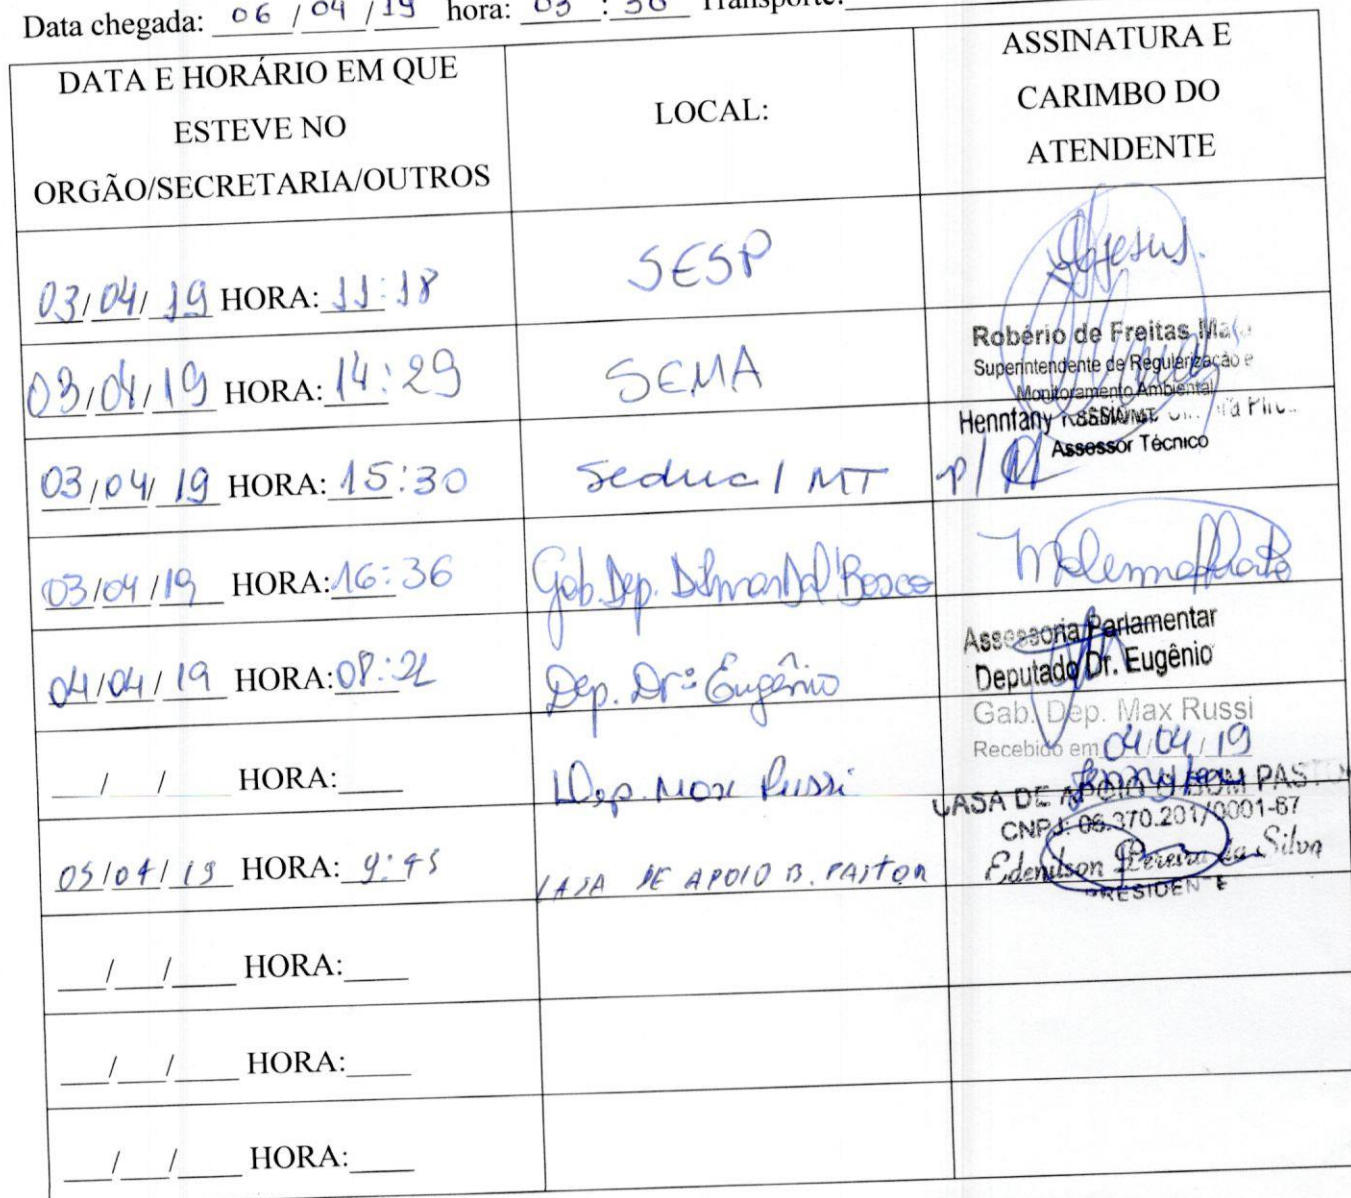 Data chegada: 06 / 04 / 19 hora: 03 : 30 Transporte:
DATA E HORÁRIO EM QUE
ESTEVE NO
ORGÃO/SECRETARIA/OUTROS
LOCAL:
ASSINATURA E
CARIMBO DO
ATENDENTE
03/04/19 HORA: 11:18
SESP
03/04/19 HORA: 14:29
SEMA
Robério de Freitas
Superintendente de Regularização e
Monitoramento Ambiental
03/04/19 HORA: 15:30
Seduc/MT
Henntany
Assessor Técnico
p/
03/04/19 HORA: 16:36
Gab. Dep. Dilmar Dal'Bosco
04/04/19 HORA: 08:
Dep. Drº Eugênio
Assessoria Parlamentar
Deputado Dr. Eugênio
__/__/__ HORA:____
Dep. Max Russi
Gab. Dep. Max Russi
Recebido em 04/04/19
05/04/19 HORA: 9:45
CASA DE APOIO B. PASTOR
CASA DE APOIO O BOM PASTOR
CNPJ: 06.370.201/0001-67
Edenilson Pereira da Silva
PRESIDENTE
__/__/__ HORA:____
__/__/__ HORA:____
__/__/__ HORA:____